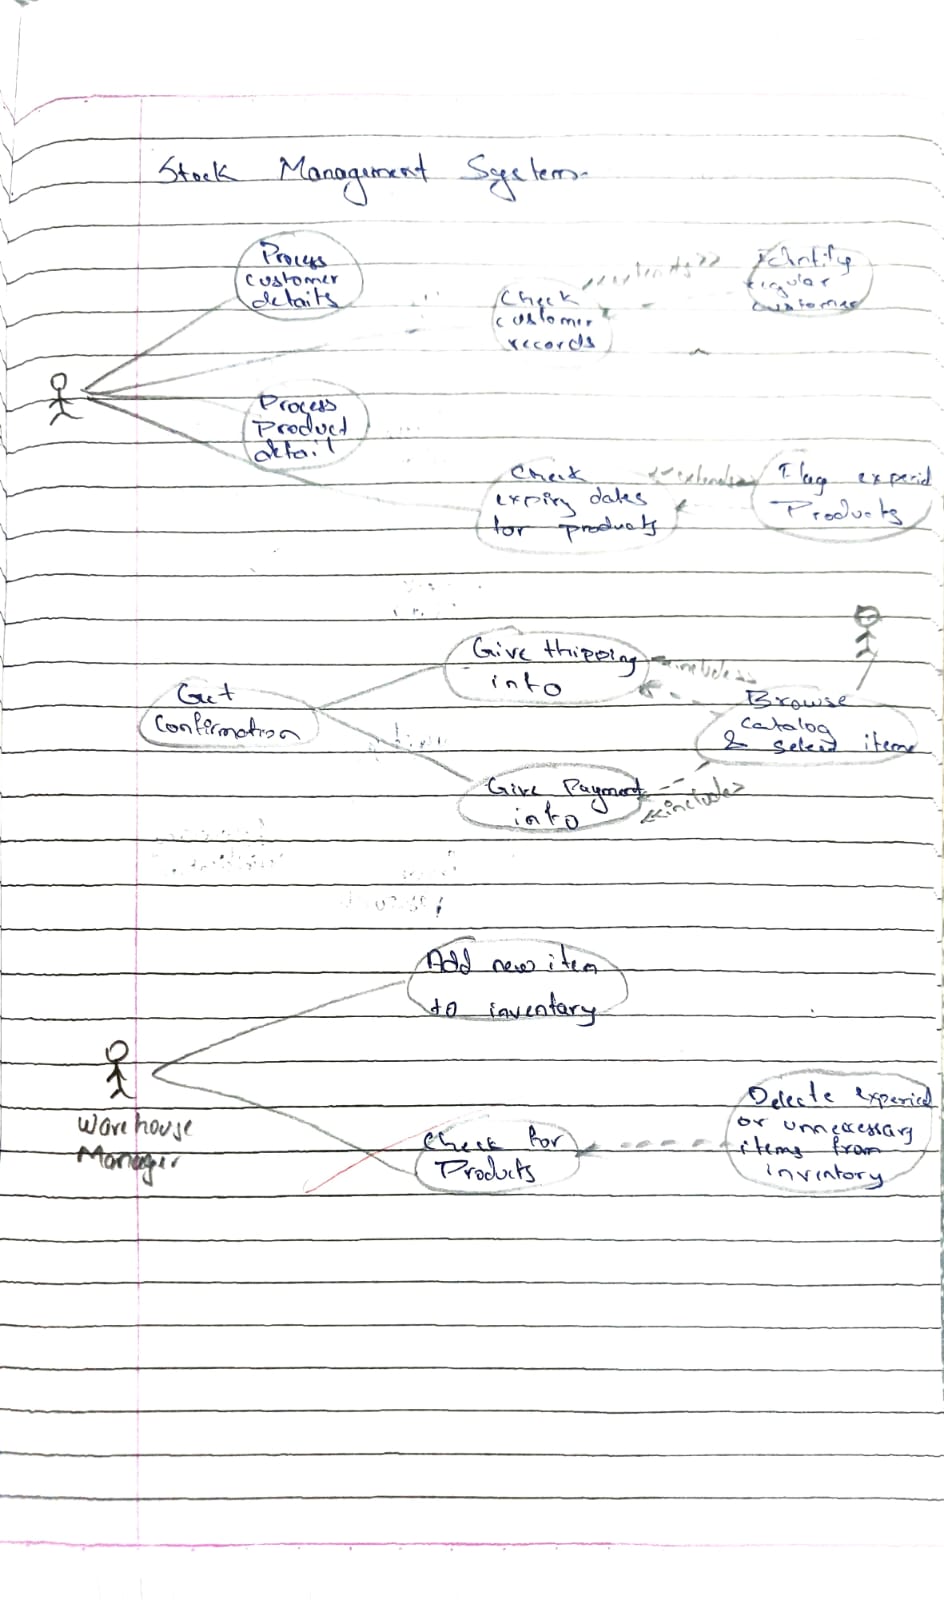 Stock Management System.
Process
customer
details
Check
customer
records
<<extends>>
Identify
regular
customer
Process
Product
detail
Check
expiry dates
for products
<<extends>>
Flag experid
Products
Give shipping
into
<<include>>
Get
Confirmation
Browse
catalog
& select items
Give Payment
into
<<include>>
Add new item
to inventary
Warehouse
Manager
Check for
Products
Delecte experied
or unnecessary
items from
inventory